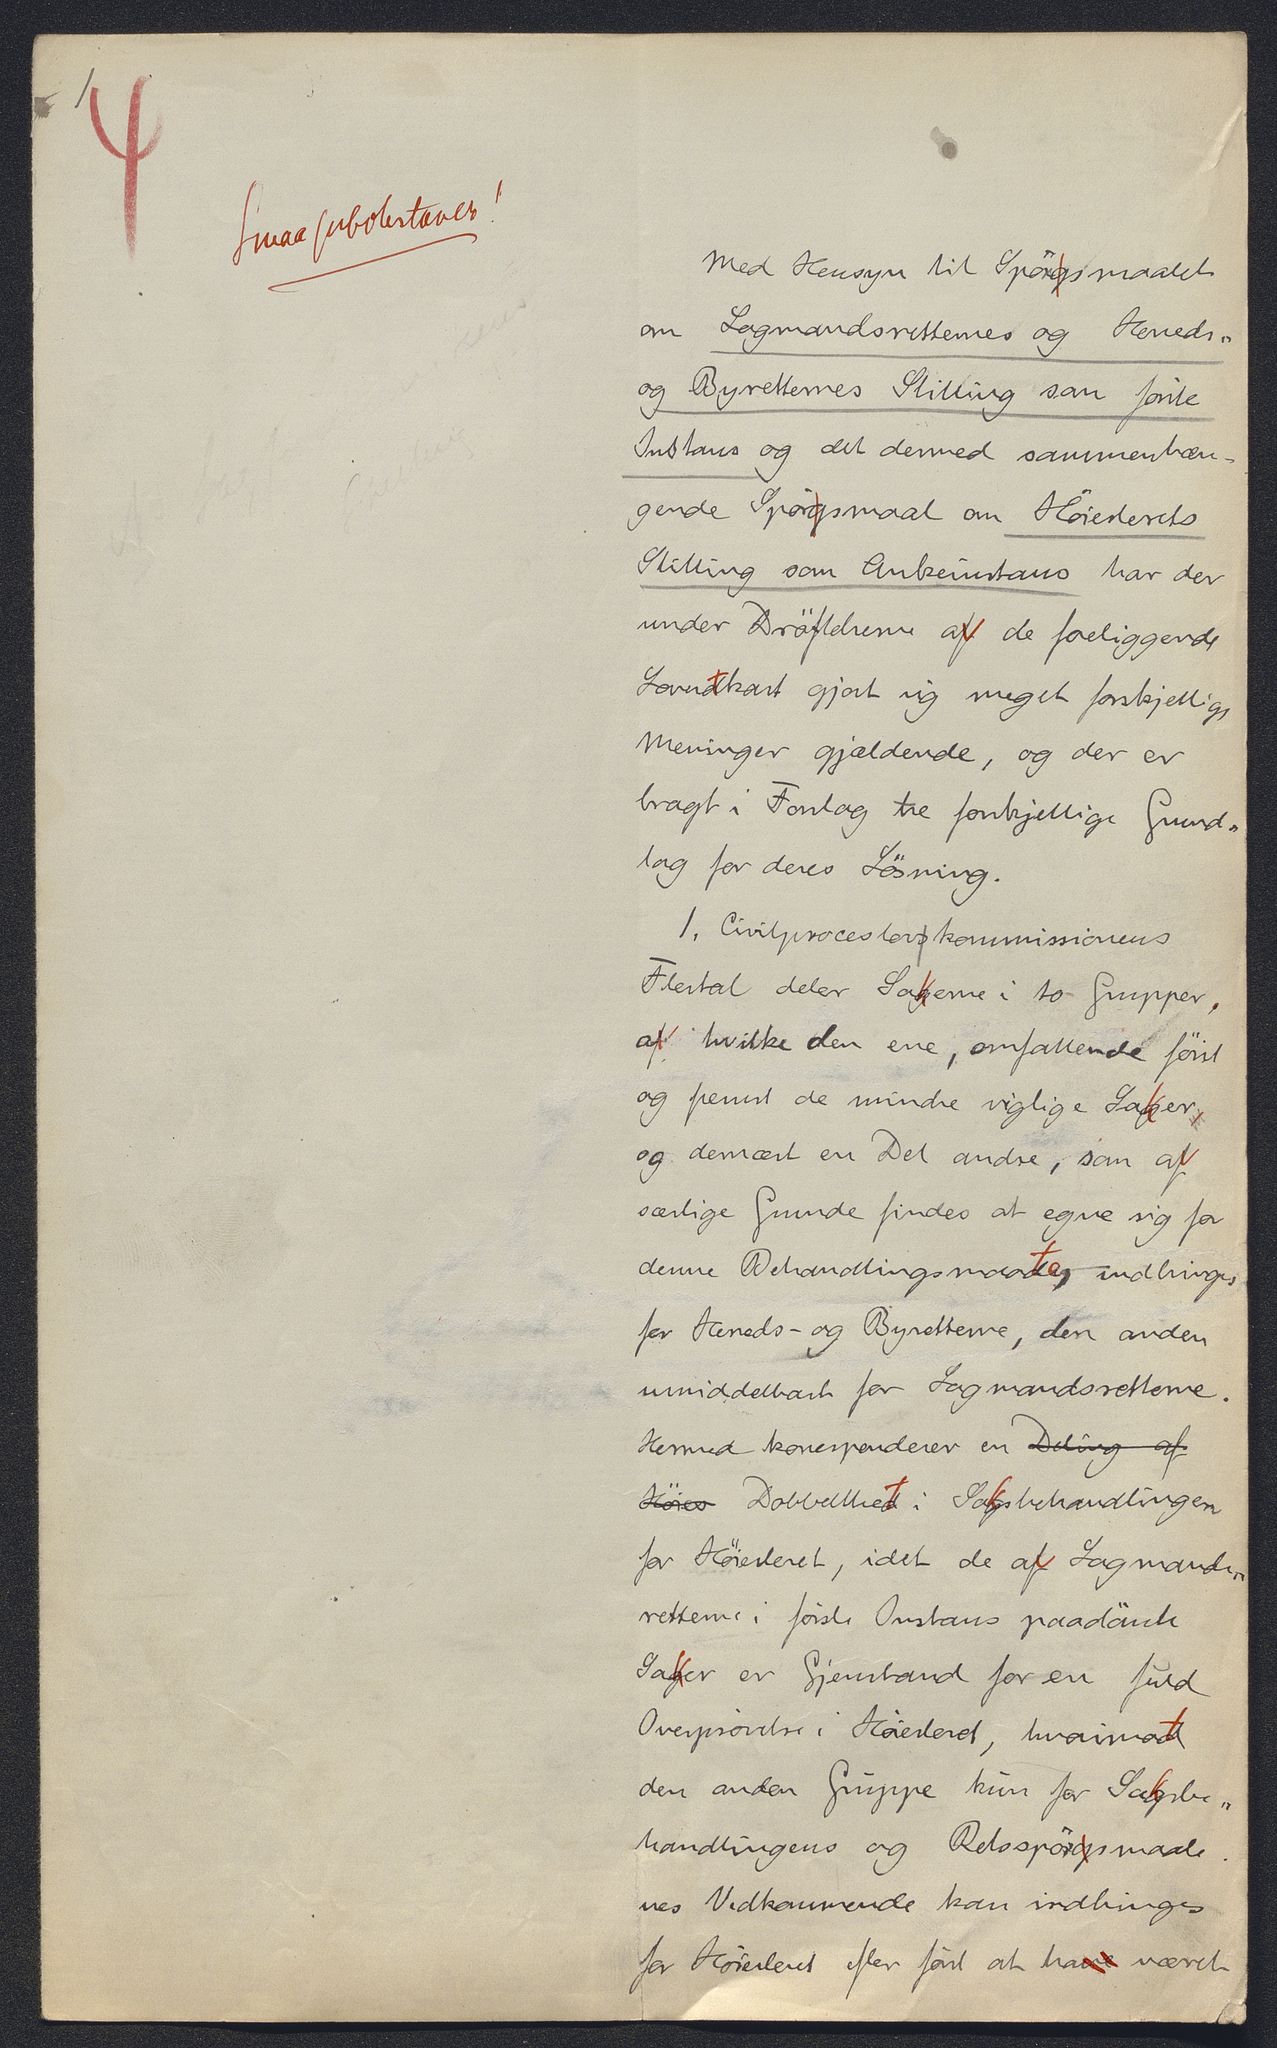 1
4
Smaa forbokstaver!
Med Hensyn til Spörgsmaalet
om Lagmandsretternes og Herreds-
og Byretternes Stilling som förste
Instans og det dermed sammenhæn-
gende Spörgsmaal om Höiesterets
Stilling som Ankeinstans har der
under Dröftelserne af de foreliggende
Lovutkast gjort sig meget forskjellige
Meninger gjældende, og der er
bragt i Forslag tre forskjellige Grund-
lag for deres Lösning.
1. Civilproceslovkommissionens
Flertal deler Sakerne i to Grupper,
af hvilke den ene, omfattende först
og fremst de mindre vigtige Saker,
og dernæst en Del andre, som af
særlige Grunde findes at egne sig for
denne Behandlingsmaate, indbringes
for Herreds- og Byretterne, den anden
umiddelbart for Lagmandsretterne.
Hermed korresponderer en Deling af
Höies Dobbelthet i Saksbehandlingen
for Höiesteret, idet de af Lagmands-
retterne i förste Instans paadömte
Saker er Gjenstand for en fuld
Overprövelse i Höiesteret, hvorimot
den anden Gruppe kun for Saksbe-
handlingens og Retsspörgsmaale-
nes Vedkommende kan indbringes
for Höiesteret efter först at have været